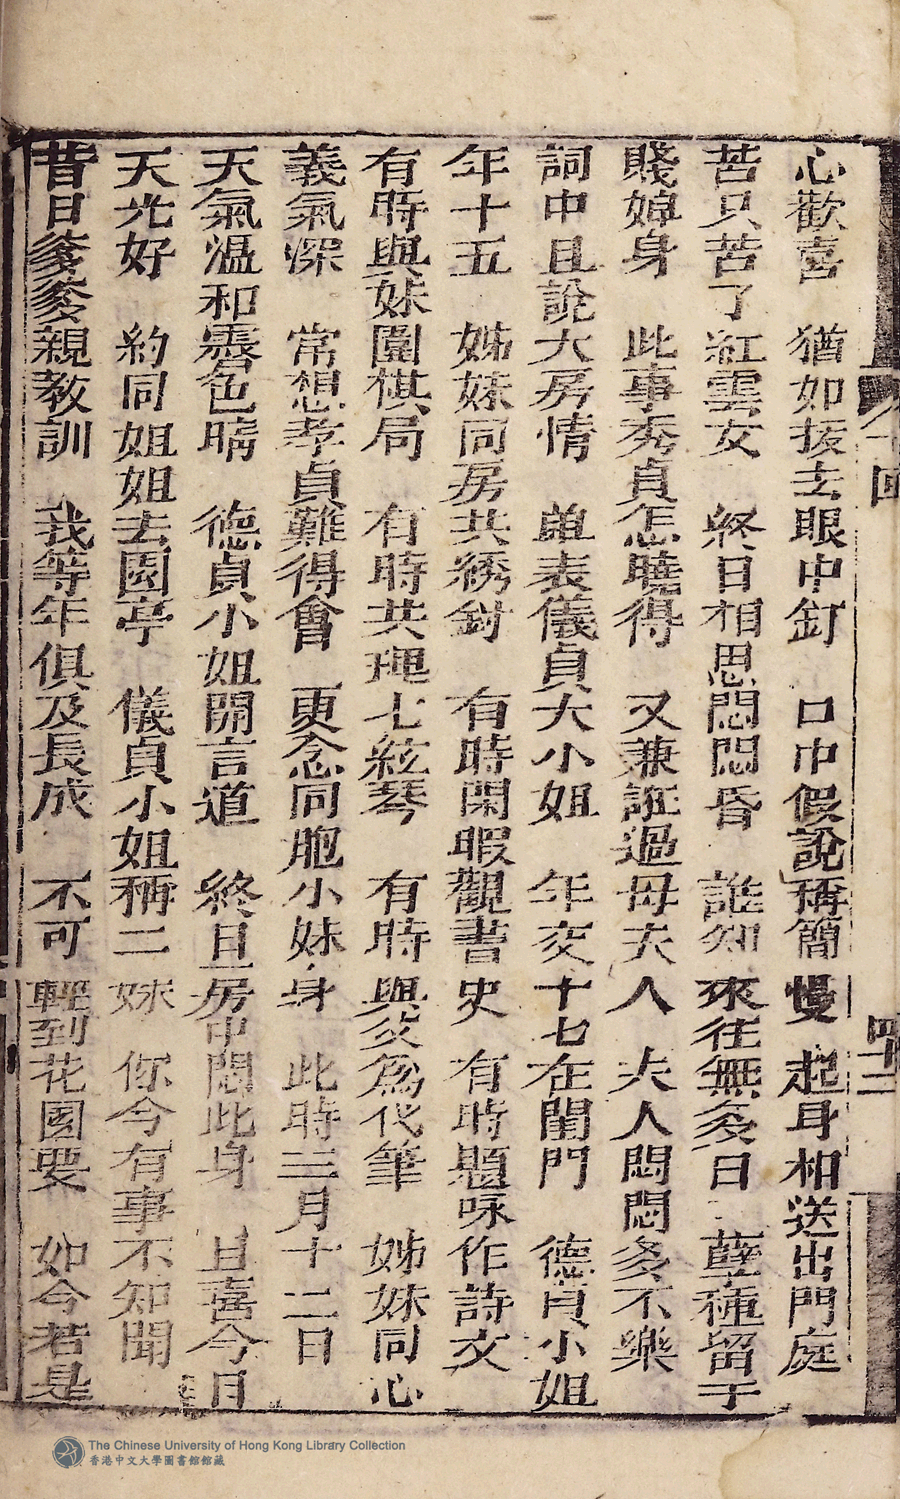 心歡喜　猶如拔去眼中釘　口巾假說稱簡慢　起身相送出門庭
苦只苦了紅雲女　終日相思悶悶昏　誰知來往無多日　孽種留于
賤婢身　此事秀貞怎曉得　又兼誑過母夫人　夫人悶悶多不樂
詞中且說大房情　單表儀貞大小姐　年交十七在閨門　德貞小姐
年十五　姊妹同房共綉針　有時閑暇觀書史　有時題咏作詩文
有時與妹圍棋局　有時共理七絃琴　有時與父爲代筆　姊妹同心
義氣深　常想孝貞難得會　更念同胞小妹身　此時三月十二日
天氣溫和霽色晴　德貞小姐開言道　終日房中悶此身　且喜今日
天光好　約同姐姐去園亭　儀貞小姐稱二妹　你今有事不知聞
昔日爹爹親教訓　我等年俱及長成　不可輕到花園耍　如今若是
十回
四十二
The Chinese University of Hong Kong Library Collection
香港中文大學圖書館館藏